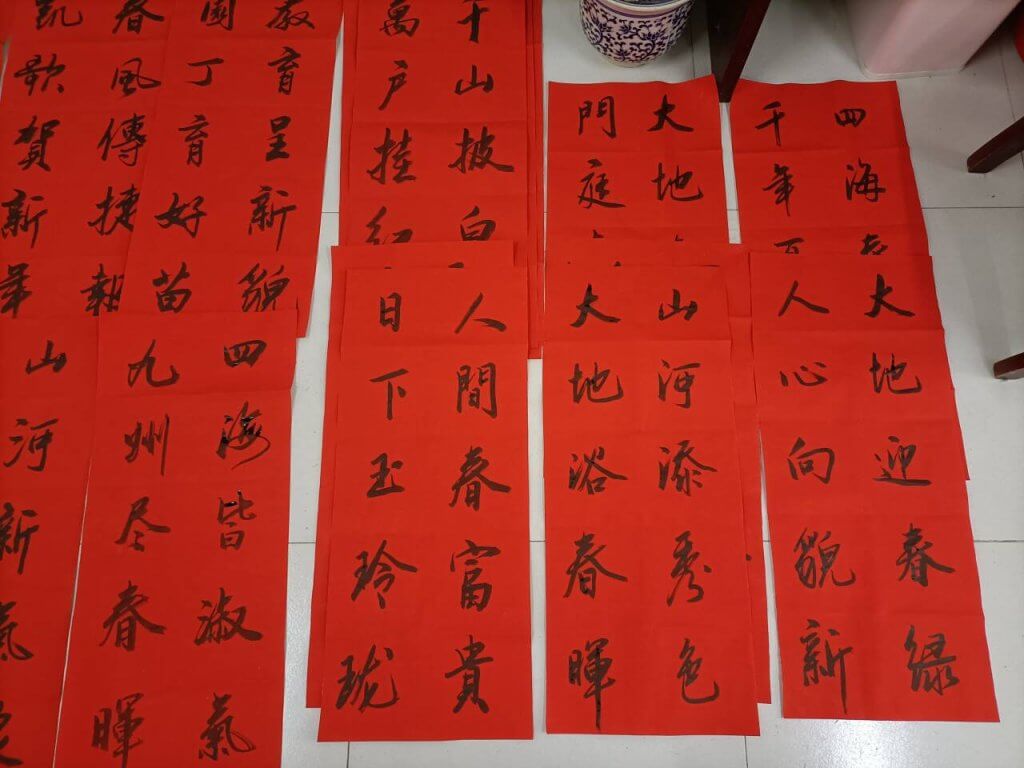 四海
千年
大地
門庭
千山披白
萬户挂紅
教育呈新貌
園丁育好苗
春風傳捷報
凱歌賀新年
大地迎春绿
人心向貌新
山河添秀色
大地浴春暉
人間春富貴
日下玉玲珑
四海皆淑氣
九州尽春暉
山河新氣